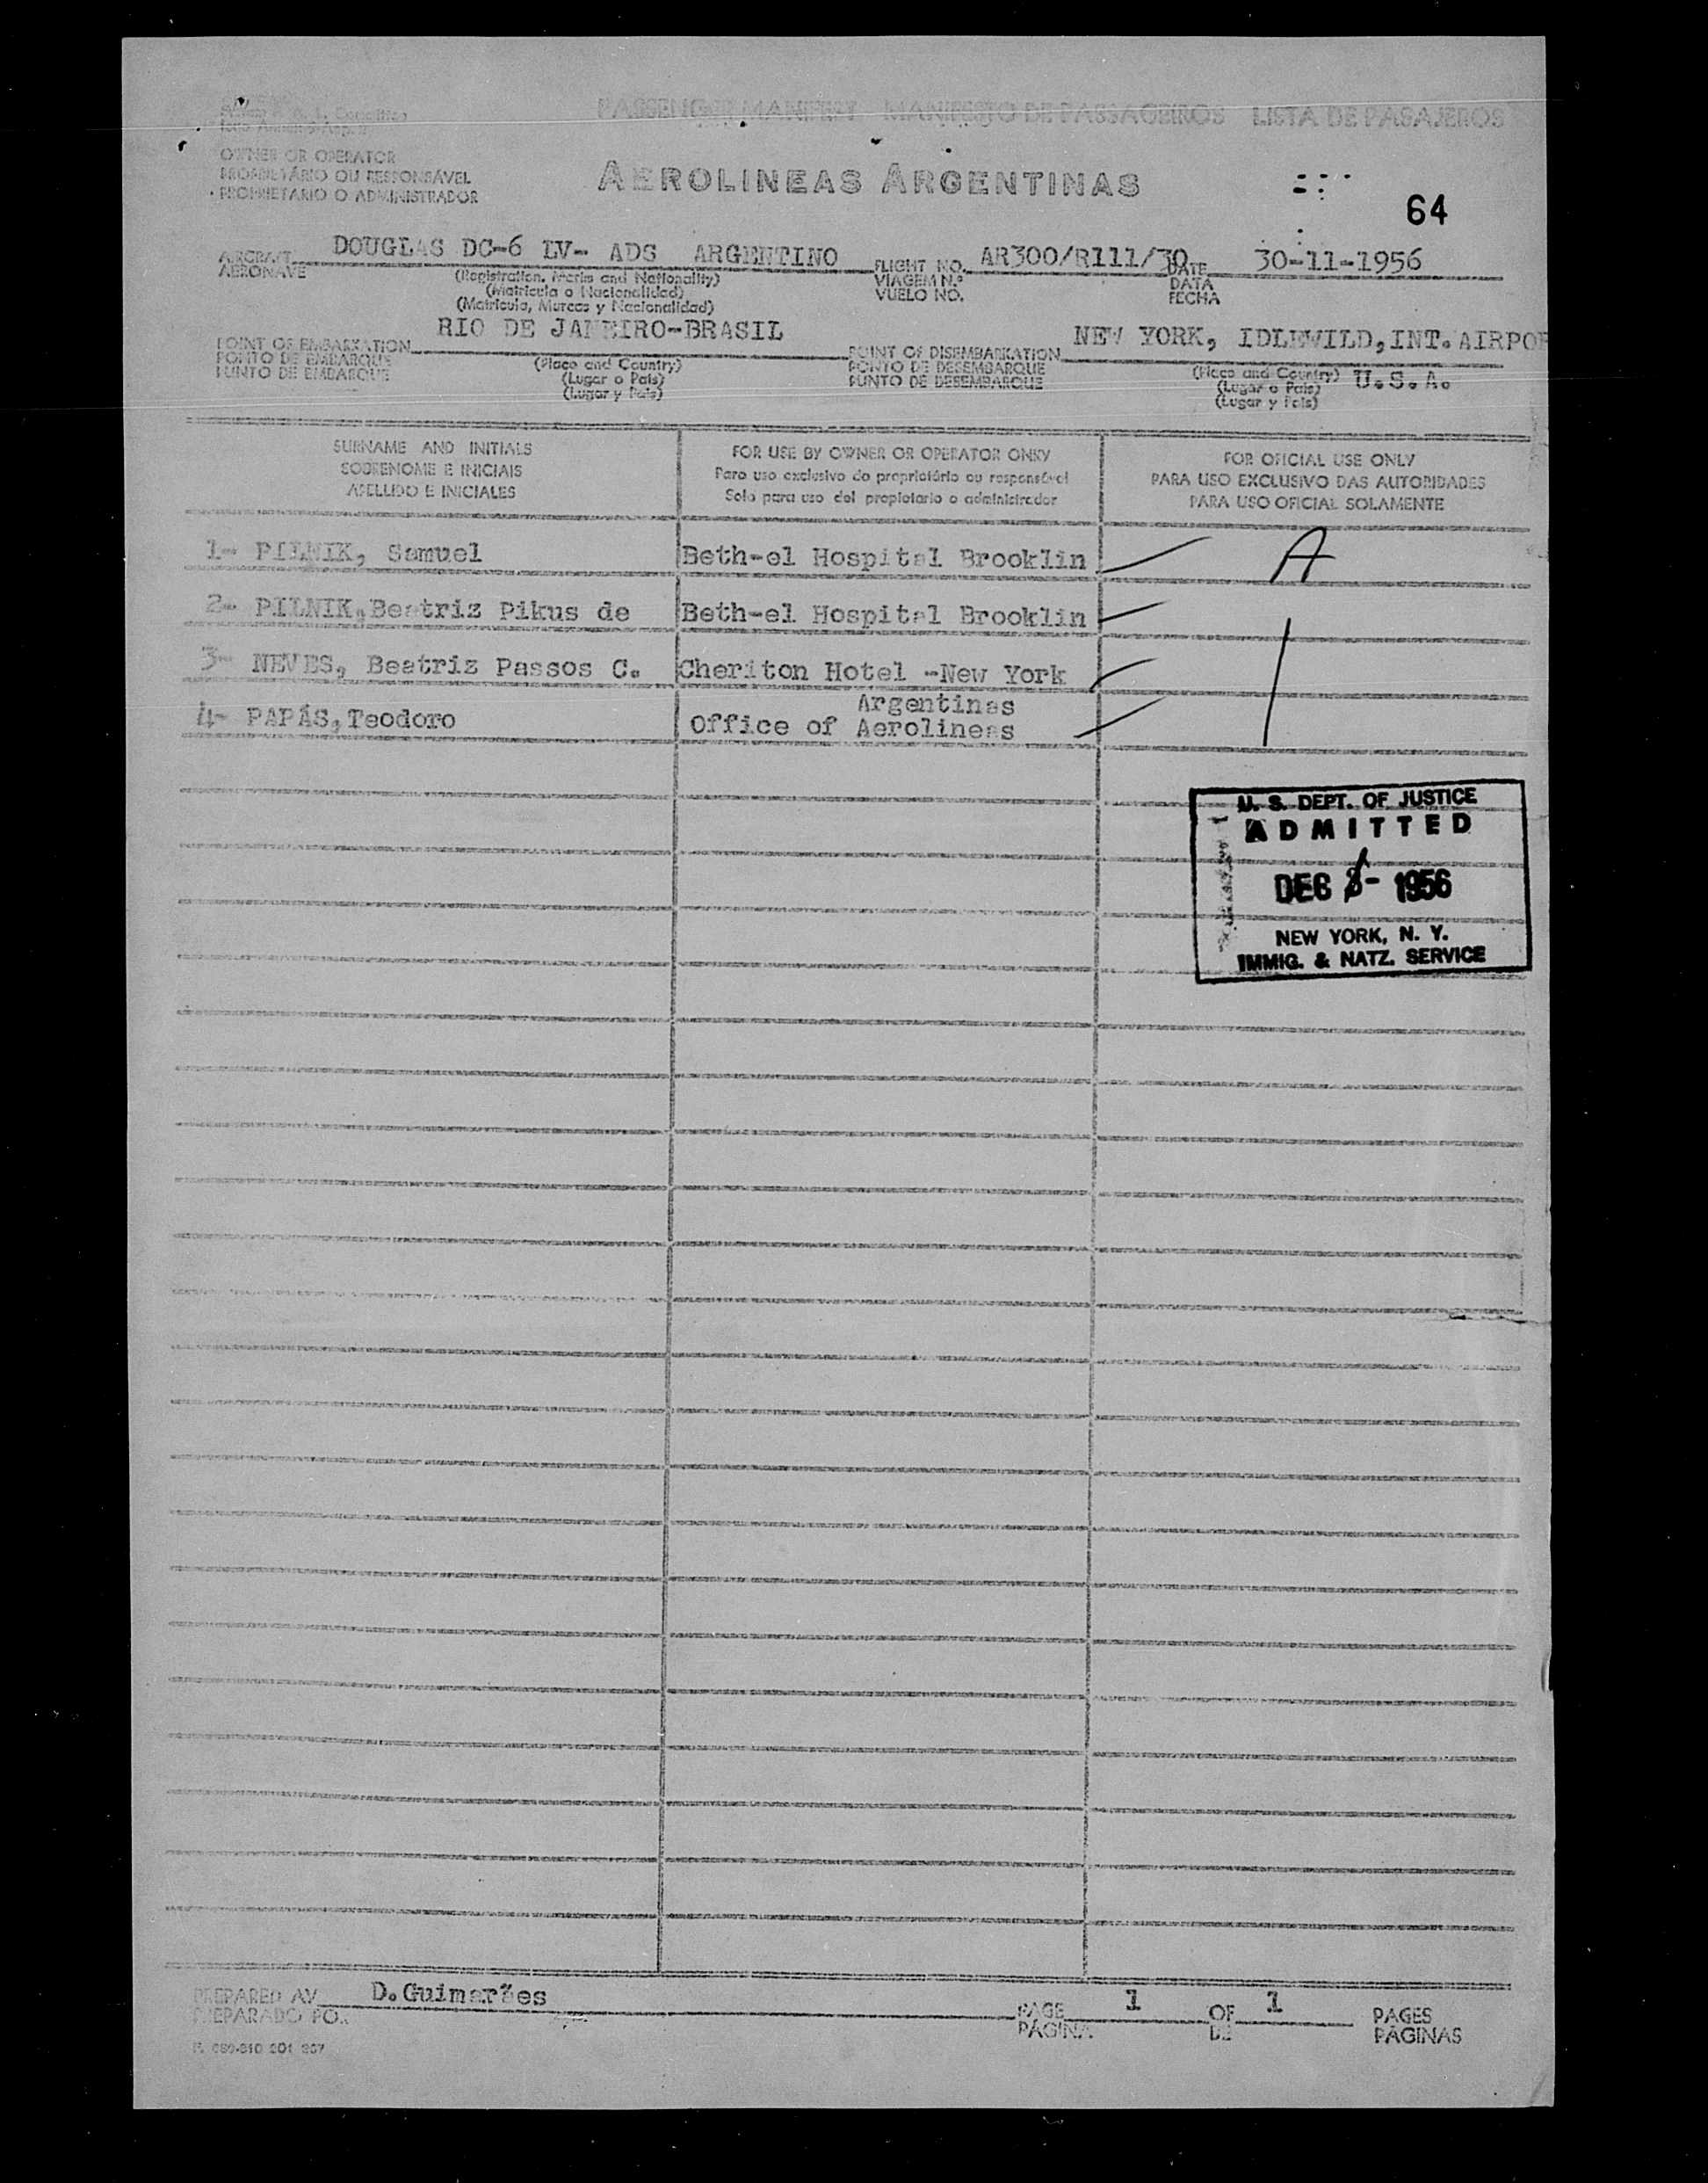 PASSENGER MANIFEST MANIFESTO DE PASSAGEIROS LISTA DE PASAJEROS
OWNER OR OPERATOR
PROPRIETÁRIO OU RESPONSÁVEL
PROPRIETARIO O ADMINISTRADOR
AEROLINEAS ARGENTINAS
64
AIRCRAFT DOUGLAS DC-6 LV- ADS ARGENTINO FLIGHT NO. AR300/R111/30 DATE 30-11-1956
AERONAVE (Registration, Marks and Nationality) VIAGEM N.º DATA
(Matricula o Nacionalidad) VUELO NO. FECHA
(Matricula, Marcas y Nacionalidad)
POINT OF EMBARKATION RIO DE JANEIRO-BRASIL POINT OF DISEMBARKATION NEW YORK, IDLEWILD,INT.AIRPOR
PONTO DE EMBARQUE (Place and Country) PONTO DE DESEMBARQUE (Place and Country) U.S.A.
PUNTO DE EMBARQUE (Lugar o Pais) PUNTO DE DESEMBARQUE (Lugar o Pais)
(Lugar y Pais) (Lugar y Pais)
SURNAME AND INITIALS FOR USE BY OWNER OR OPERATOR ONKY FOR OFICIAL USE ONLY
SOBRENOME E INICIAIS Para uso exclusivo do proprietário ou responsável PARA USO EXCLUSIVO DAS AUTORIDADES
APELLIDO E INICIALES Solo para uso del propietario o administrador PARA USO OFICIAL SOLAMENTE
1- PILNIK, Samuel Beth-el Hospital Brooklin A
2- PILNIK,Beatriz Pikus de Beth-el Hospital Brooklin
3- NEVES, Beatriz Passos C. Cheriton Hotel -New York
Argentinas
4- PAPÁS,Teodoro Office of Aerolineas
U. S. DEPT. OF JUSTICE
ADMITTED
DEC 1956
NEW YORK, N. Y.
IMMIG. & NATZ. SERVICE
PREPARED AV D.Guimarães PAGE 1 OF 1 PAGES
PREPARADO POR PÁGINA DE PÁGINAS